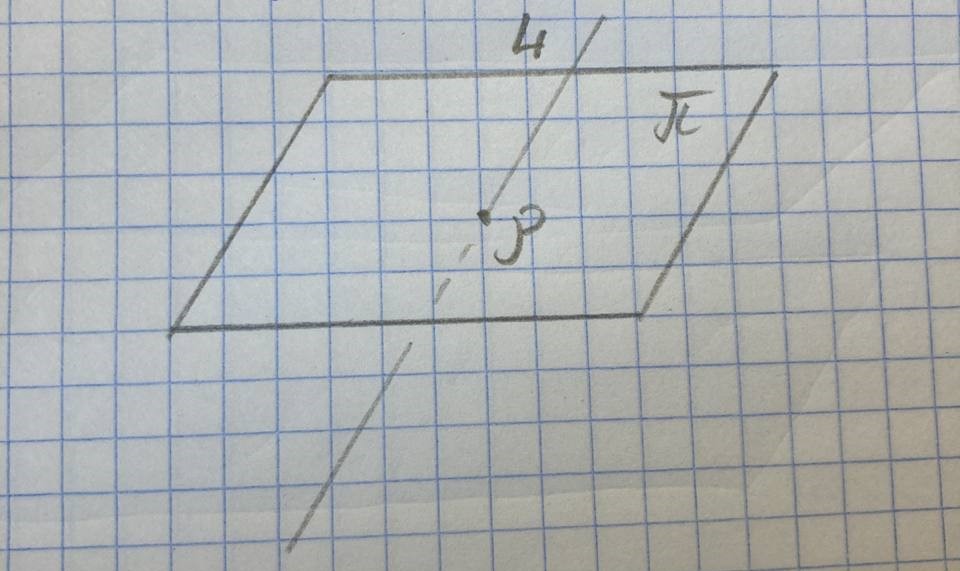 4
π
P